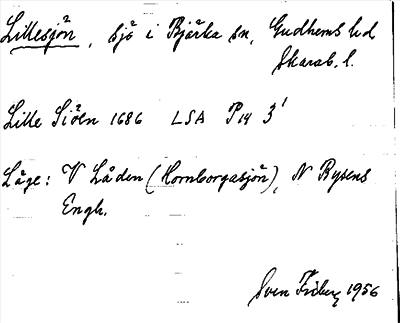 Lillesjön, sjö i Bjärka sn, Gudhems hd
Skarab. l.
Lille Siöen 1686 LSA P14 3'
Läge: V Låden (Hornborgasjön), N Rysens
Engh.
Sven Friberg 1956